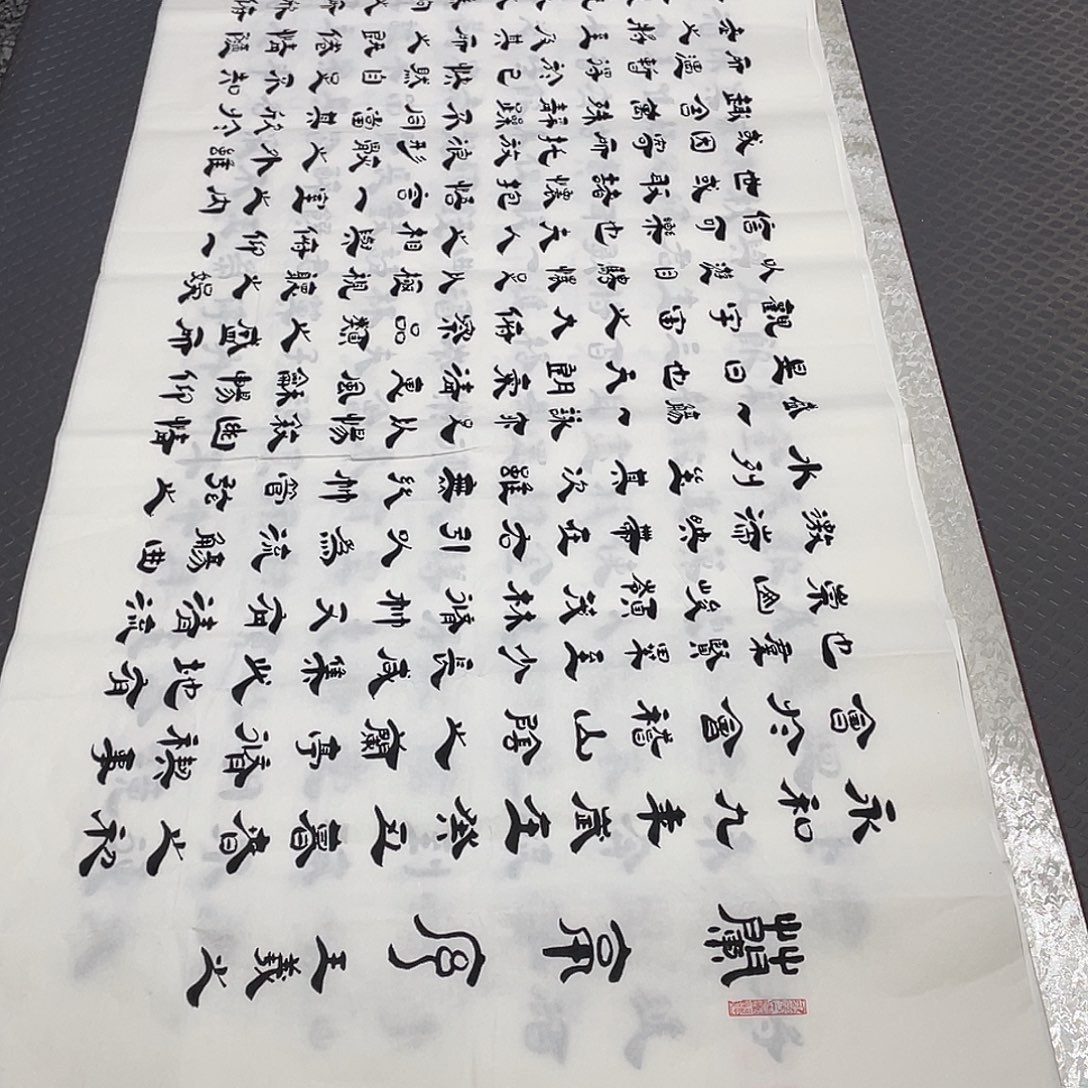 蘭亭序 王羲之
永和九年歲在癸丑暮春之初
會於會稽山陰之蘭亭脩禊事
也群賢畢至少長咸集此地有
崇山峻領茂林脩竹又有清流
激湍映帶左右引以為流觴曲
水列坐其次雖無絲竹管弦之
盛一觴一詠亦足以暢敘幽情
是日也天朗氣清惠風和暢仰
觀宇宙之大俯察品類之盛所
以遊目騁懷足以極視聽之娛
信可樂也夫人之相與俯仰一
世或取諸懷抱悟言一室之內
或因寄所託放浪形骸之外雖
趣舍萬殊靜躁不同當其欣於
所遇暫得於己快然自足不知